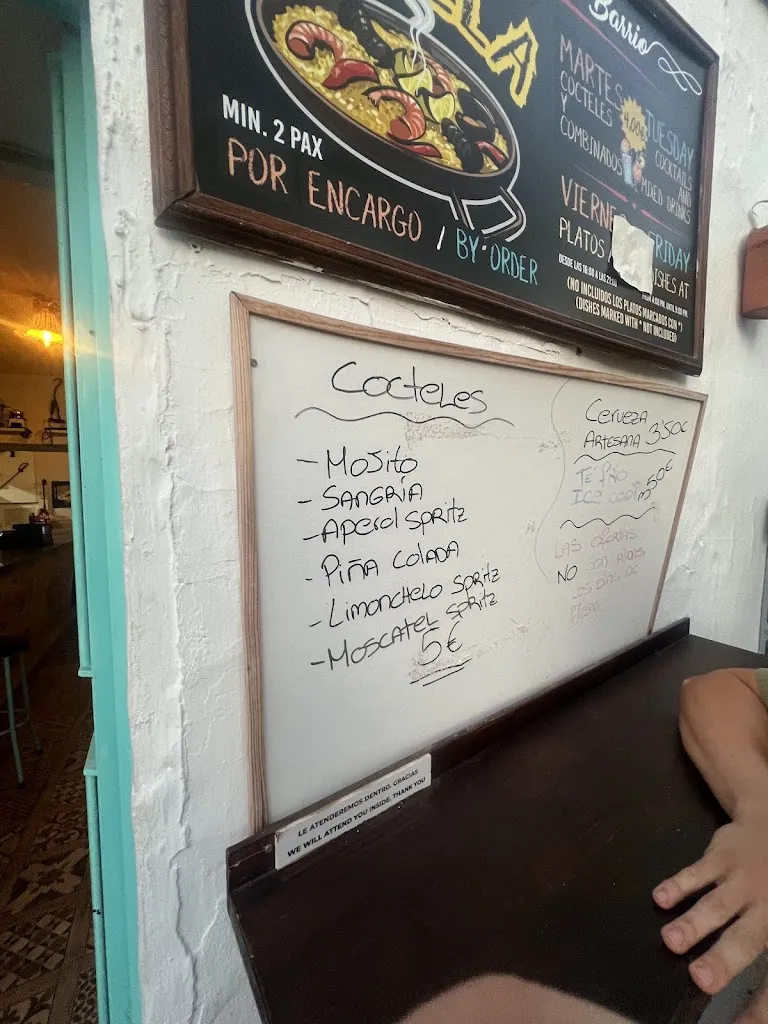 Barrio
MIN. 2 PAX
POR ENCARGO / BY ORDER
MARTES TUESDAY
COCTELES COCKTAILS
Y AND
COMBINADOS MIXED DRINKS
4,00€
VIERNES FRIDAY
PLATOS DISHES AT
(NO INCLUIDOS LOS PLATOS MARCADOS CON *)
(DISHES MARKED WITH * NOT INCLUDED)
COCTELES
- MOJITO
- SANGRÍA
- APEROL SPRITZ
- PIÑA COLADA
- LIMONCHELO SPRITZ
- MOSCATEL SPRITZ
5€
CERVEZA
ARTESANA 3'50€
TÉ FRÍO
ICE
LAS OFERTAS
NO SON
LE ATENDEREMOS DENTRO. GRACIAS
WE WILL ATTEND YOU INSIDE. THANK YOU